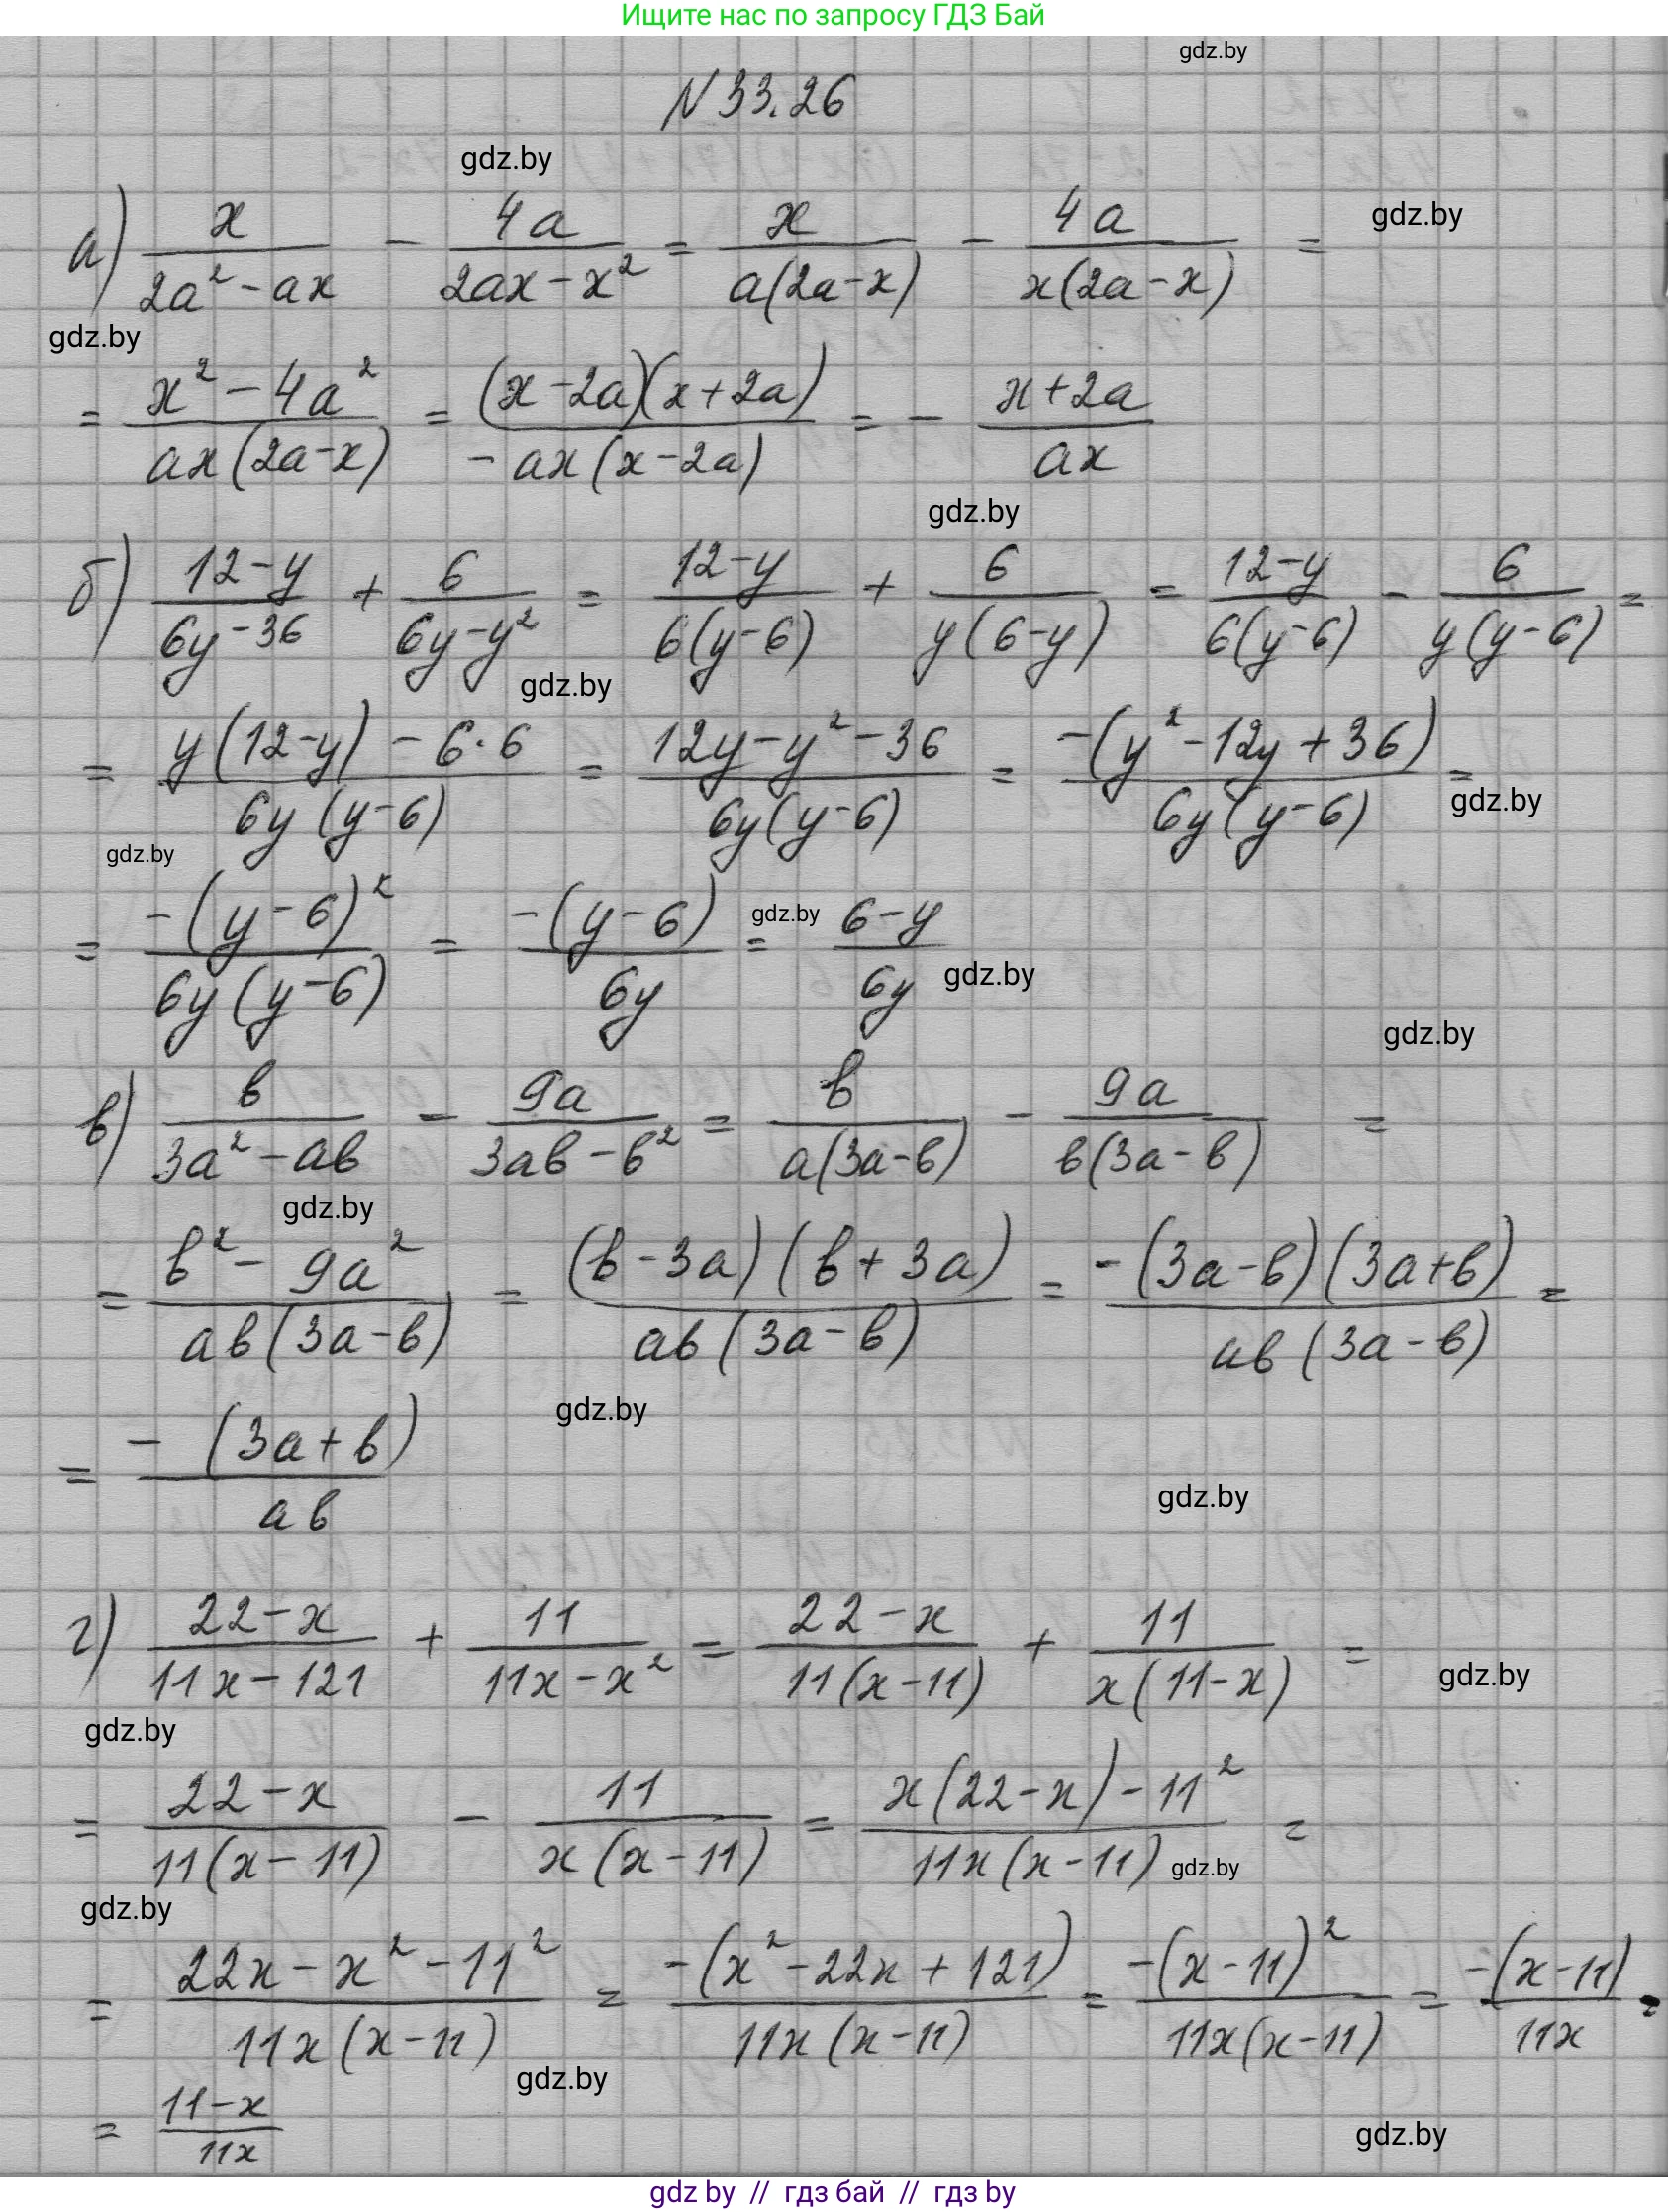 Ищите нас по запросу ГДЗ Бай
gdz.by
N 33.26
gdz.by
а) x/(2a² - ax) - 4a/(2ax - x²) = x/(a(2a - x)) - 4a/(x(2a - x)) =
gdz.by
gdz.by
= (x² - 4a²)/(ax(2a - x)) = ((x - 2a)(x + 2a))/(-ax(x - 2a)) = - (x + 2a)/(ax)
gdz.by
б) (12 - y)/(6y - 36) + 6/(6y - y²) = (12 - y)/(6(y - 6)) + 6/(y(6 - y)) = (12 - y)/(6(y - 6)) - 6/(y(y - 6)) =
gdz.by
= (y(12 - y) - 6·6)/(6y(y - 6)) = (12y - y² - 36)/(6y(y - 6)) = (-(y² - 12y + 36))/(6y(y - 6)) =
gdz.by
gdz.by
= (-(y - 6)²)/(6y(y - 6)) = (-(y - 6))/(6y) = (6 - y)/(6y)
gdz.by
gdz.by
gdz.by
в) в/(3a² - aв) - 9a/(3aв - в²) = в/(a(3a - в)) - 9a/(в(3a - в)) =
gdz.by
= (в² - 9a²)/(aв(3a - в)) = ((в - 3a)(в + 3a))/(aв(3a - в)) = (-(3a - в)(3a + в))/(aв(3a - в)) =
gdz.by
= (-(3a + в))/(aв)
gdz.by
г) (22 - x)/(11x - 121) + 11/(11x - x²) = (22 - x)/(11(x - 11)) + 11/(x(11 - x)) =
gdz.by
gdz.by
= (22 - x)/(11(x - 11)) - 11/(x(x - 11)) = (x(22 - x) - 11²)/(11x(x - 11)) =
gdz.by
gdz.by
= (22x - x² - 11²)/(11x(x - 11)) = (-(x² - 22x + 121))/(11x(x - 11)) = (-(x - 11)²)/(11x(x - 11)) = (-(x - 11))/(11x) =
gdz.by
= (11 - x)/(11x)
gdz.by
gdz by // гдз бай // гдз by